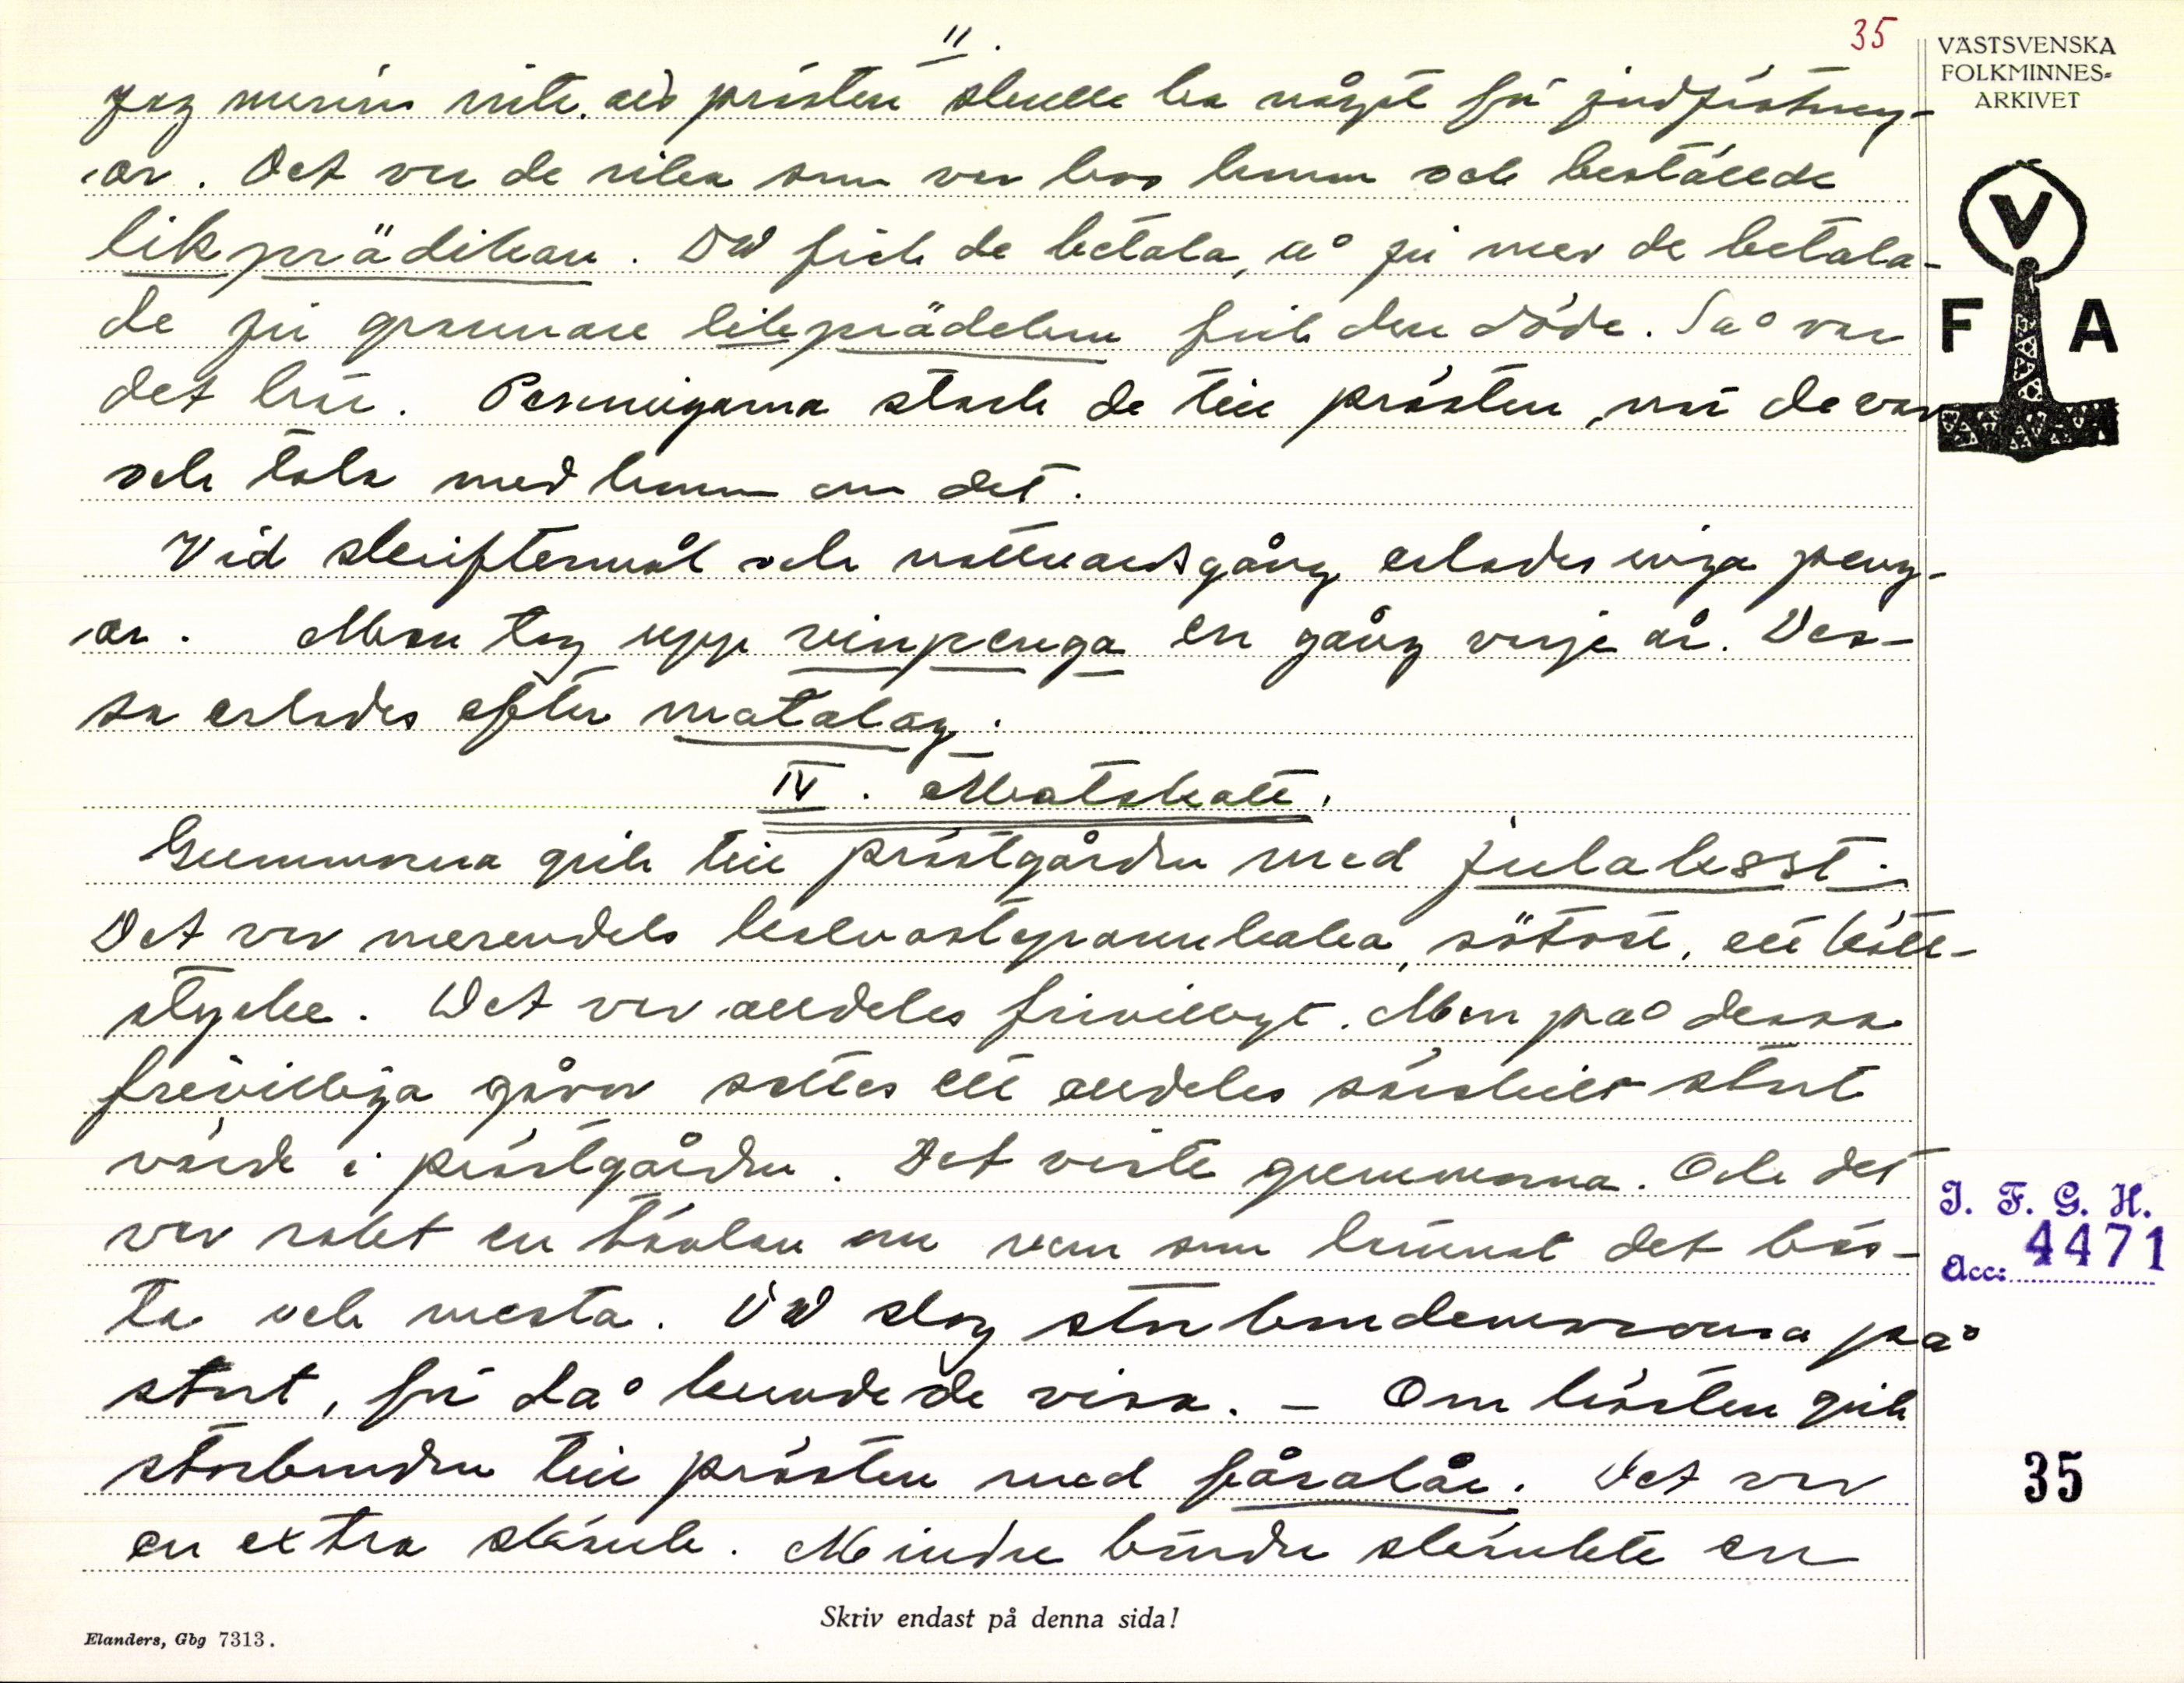 11.
35
VÄSTSVENSKA
FOLKMINNES-
ARKIVET
V
F A
Jag minns inte att prästen skulle ha något för jordfästning-
ar. Det var de rika som var hos honom och beställde
likprädikan. Då fick de betala, å ju mer de betala-
de ju grannare likprädeken fick den döde. Så var
det här. Penningarna stack de till prästen, när de var
och tala med honom om det.
Vid skriftermål och nattvardsgång erlades inga peng-
ar. Man tog upp vinpenga en gång varje år. Des-
sa erlades efter matalag.
IV. Matskatt.
Gummorna gick till prästgården med julakost.
Det var merendels kalvostapannkaka, sötost, ett kött-
stycke. Det var alldeles frivilligt. Men på dessa
frivilliga gåvor sattes ett alldeles särskilt stort
värde i prästgården. Det visste gummorna. Och det
var rakt en tävlan om vem som lämnat det bäs-
ta och mesta. Då slog storbondemororna på
stort, för då kunde de visa. – Om hösten gick
storbonden till prästen med fåralår. Det var
en extra skänk. Mindre bönder skänkte en
I. F. G. H.
Acc: 4471
35
Skriv endast på denna sida!
Elanders, Gbg 7313.